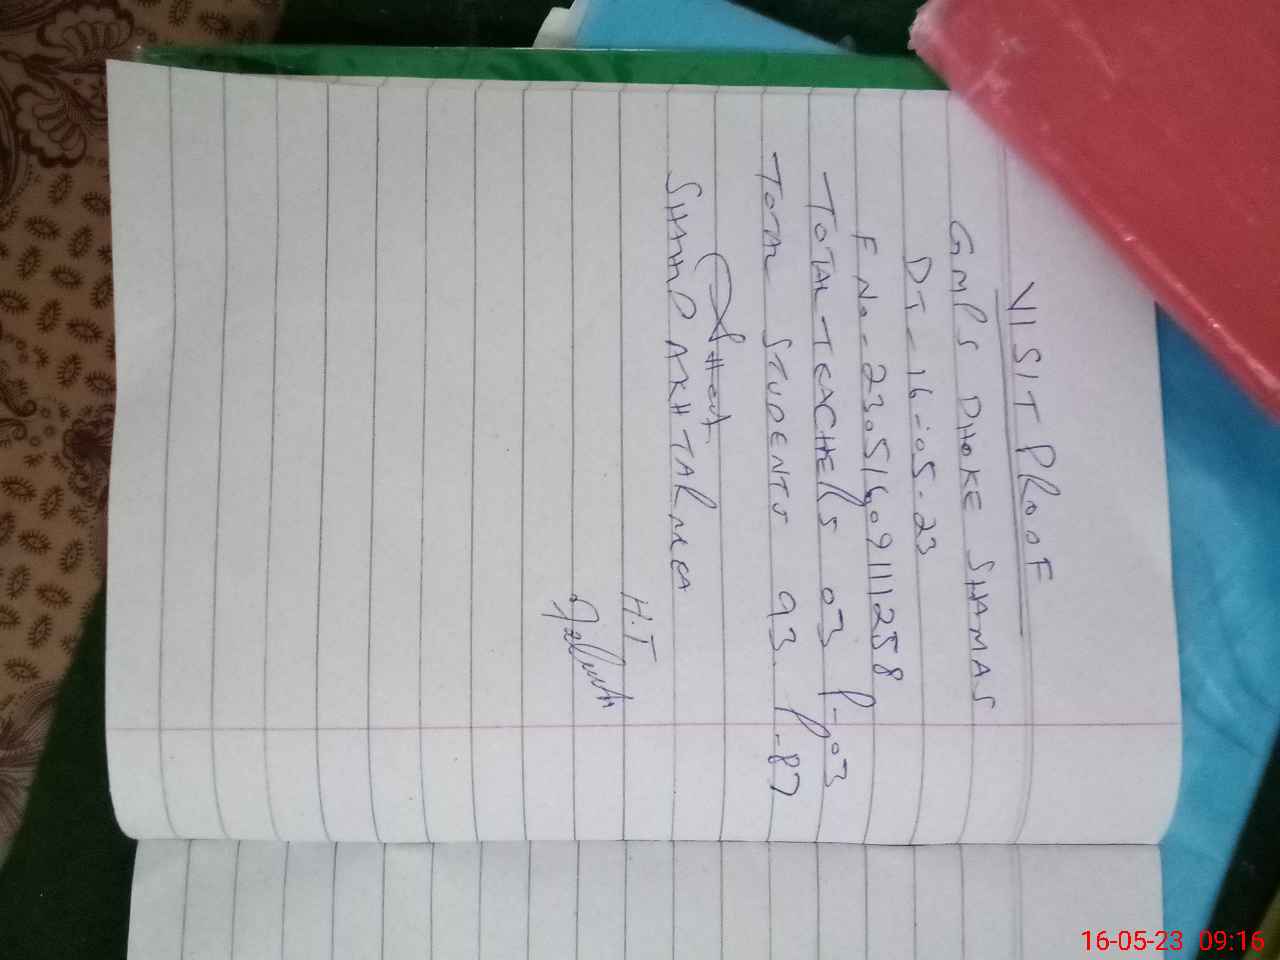 VISIT PROOF
GMPS DHOKE SHAMAS
DT-16-05-23
F No- 230516091111258
TOTAL TEACHERS 03 P-03
TOTAL STUDENTS 93 P-87
SHAHID AKHTAR MEA
H.T
16-05-23 09:16